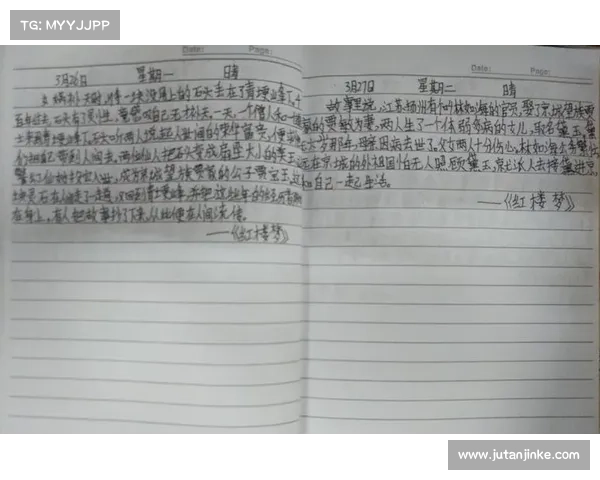 TG: MYYJJPP
Date: Page:
3月26日 星期一 晴
女娲补天时,将一块没用上的石头丢在了青埂峰下,千
百年过去,石头有了灵性,常常叹自己无才补天。一天,一个僧人和一
士来到青埂峰下,石头听两人说起人世间的荣华富贵,便
们把自己带到人间去。两位仙人把石头变成扇坠大小的美玉
警幻仙
块灵石在人间走了一趟,又回到青埂峰,并把这些年的经历
在身上,有人把故事抄了下来,从此便在人间流传。
——《红楼梦》
Date: Page:
3月27日 星期二 晴
故事里说,江苏扬州有个叫林如海的官员,娶了京城望族
的贾敏为妻,两人生了一个体弱多病的女儿,取名黛玉,黛
六岁那年,母亲因病去世了,父女两人十分伤心,林如海
远在京城的外祖母怕无人照顾黛玉,就派人去接黛玉进京,
和自己一起生活。
——《红楼梦》
www.jutanjinke.com